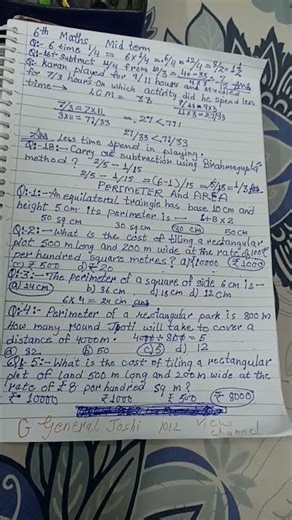 6th Maths Mid term
Q:- 6 time 1/4 = 6 x 1/4 = 6/4 = 12/4 = 3/2 = 1 1/2
Q:- 16:- subtract 4/4 from 8/3 =
Q:- Karan played for 9/11 hours and studied
for 7/3 hours On which activity did he spend less
time → LCM = 33
7/3 = 7x11 9/11 = 9x3
3x11 = 77/33 11x3 = 27/33
= 27 < 77
27/33 < 77/33
Ans less time spend in playing
Q:- 18:- Carry out subtraction using Brahmagupta's
method? 2/5 - 1/15
2/5 - 1/15 = (6-1)/15 = 5/15 = 1/3 Ans
PERIMETER and AREA
Q:-1:- An equilateral traingle has base 10cm and
height 5cm its perimeter is —— L+B x 2
50 sq cm 30 sq cm 30 cm 50cm
Q:-2:- What is the cost of tiling a rectangular
plot 500m long and 200m wide at the rate of ₹100
per hundred square metres? a) ₹10000 ₹1000
c) ₹500 d) ₹20
Q:-3:- The perimeter of a square of side 6cm is -
a) 24cm b) 36cm c) 18cm d) 12cm
6x4 = 24cm ans
Q:-4:- Perimeter of a rectangular park is 800m
How many round Jyoti will take to cover a
distance of 4000m. 4000÷800 = 5
a) 32 b) 50 c) 5 d) 12
Q:- 5:- What is the cost of tiling a rectangular
plt of land 500 m long and 200m wide at the
rate of ₹8 per hundred sq m?
₹10000 ₹1000 ₹500 ₹8000
G General Joshi 1012 View
channel